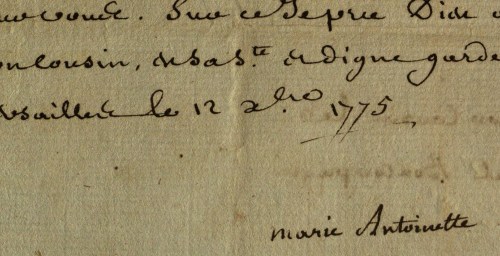 Sur ce Je prie Dieu
cousin, en sa s.te et digne garde
ersailles le 12 xbre 1775
marie Antoinette